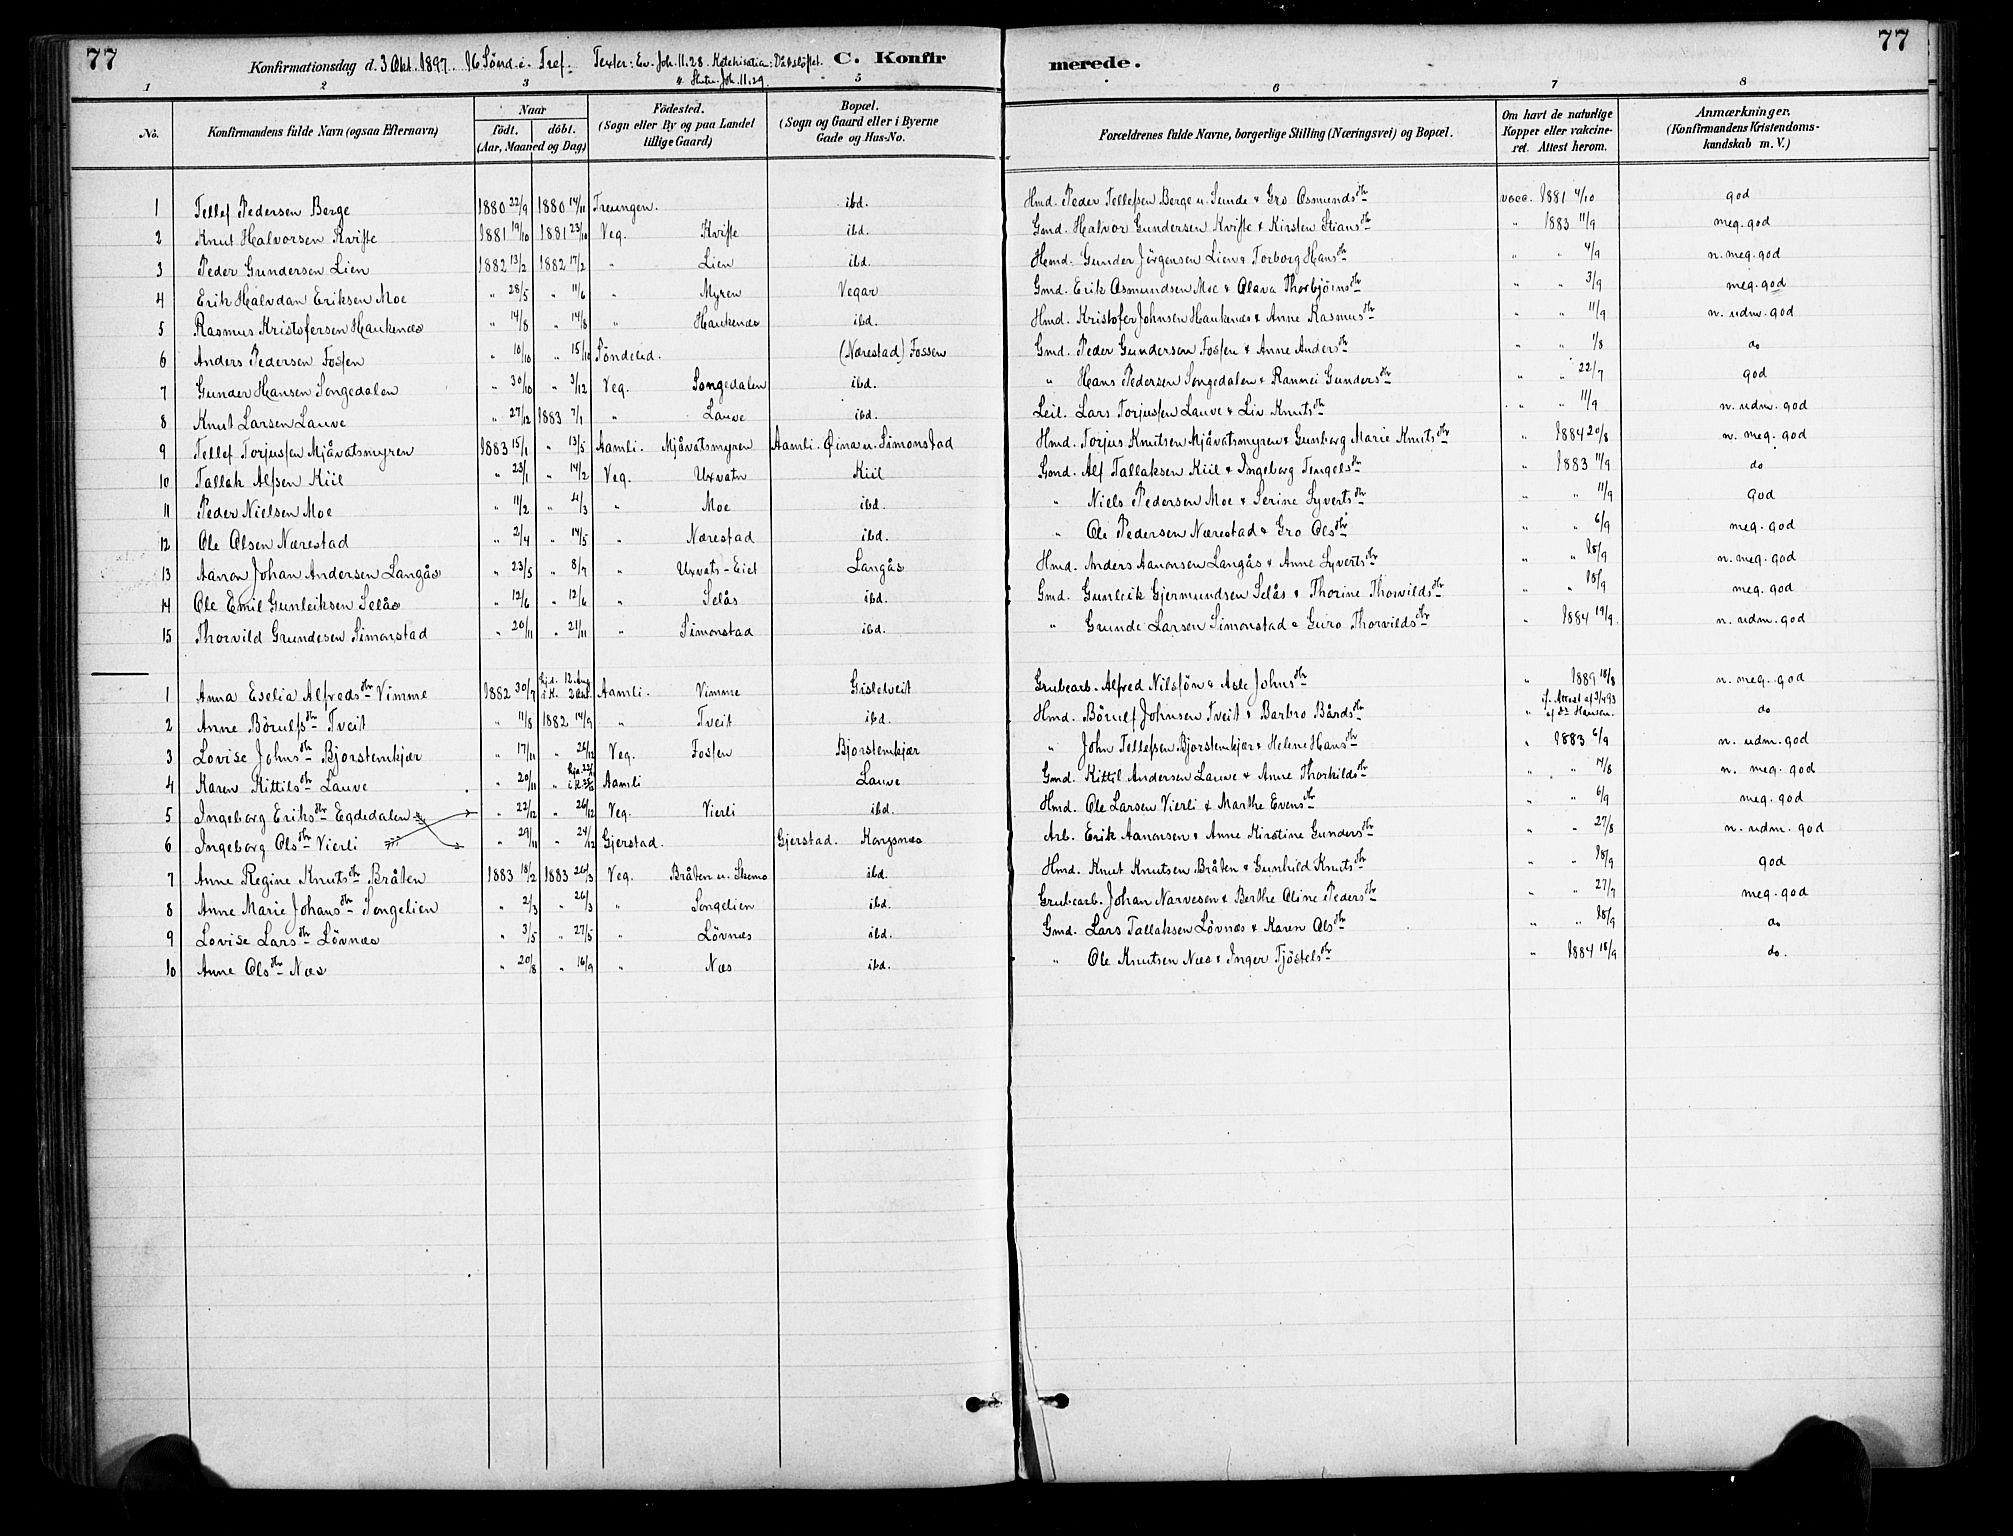 77
Konfirmationsdag d. 3 Okt. 1897. 16 Sönd. e. Tref. Texter: Ev. Joh. 11.28. Katekisation: Dåbslöftet. C. Konfir
Joh. 11.29.
1 2 3 5
No. Konfirmandens fulde Navn (ogsaa Efternavn) Naar födt. döbt. (Aar, Maaned og Dag) Födested. (Sogn eller By og paa Landet tillige Gaard) Bopæl. (Sogn og Gaard eller i Byerne Gade og Hus-No.
1 Tellef Pedersen Berge 1880 22/9 1880 14/11 Treungen. ibd.
2 Knut Halvorsen Kviste 1881 19/10 1881 23/10 Veg. Kviste ibd.
3 Peder Gundersen Lien 1882 13/2 1882 17/2 " Lien ibd.
4 Erik Halvdan Eriksen Moe " 28/5 " 11/6 " Myren Vegar
5 Rasmus Kristofersen Haukenæs " 14/8 " 14/8 " Haukenæs ibd.
6 Anders Pedersen Fossen " 10/10 " 15/10 Söndeled. (Nærestad) Fossen
7 Gunder Hansen Songedalen " 30/10 " 3/12 Veg. Songedalen ibd.
8 Knut Larsen Lauve " 27/12 1883 7/1 " Lauve ibd.
9 Tellef Torjussen Mjåvatsmyren 1883 15/1 " 13/5 Aamli. Mjåvatsmyren Aamli. Øina u. Simonstad
10 Tallak Alfsen Kiil " 23/1 " 14/2 Veg. Uxvatn Kiil
11 Peder Nielsen Moe " 11/2 " 4/3 " Moe ibd.
12 Ole Olsen Nærestad " 2/4 " 14/5 " Nærestad ibd.
13 Aanon Johan Andersen Langås " 23/5 " 8/7 " Uxvats-Eiet Langås
14 Ole Emil Gunleiksen Selås " 12/6 " 12/6 " Selås ibd.
15 Thorvild Grundesen Simonstad " 20/11 " 21/11 " Simonstad ibd.
1 Anna Eselia Alfredsdtr Vimme 1882 30/7 hjd. 12. Aug i K. Aamli. Vimme Gisletveit
2 Anne Börulfsdtr Tveit " 11/8 1882 14/9 " Tveit ibd.
3 Lovise Johnsdtr Bjorstemkjær " 17/11 " 26/12 Veg. Fossen Bjorstemkjær
4 Karen Kittilsdtr Lauve " 20/11 " Aamli Lauve
5 Ingeborg Eriksdtr Egdedalen " 22/12 " 26/12 Veg. Vierli ibd.
6 Ingeborg Olsdtr Vierli " 29/11 " 24/12 Gjerstad. Gjerstad. Korgsnæs
7 Anne Regine Knutsdtr Bråten 1883 18/2 1883 26/3 Veg. Bråten u. Skomo ibd.
8 Anne Marie Johansdtr Songelien " 2/3 " 26/3 " Songelien ibd.
9 Lovise Larsdtr Lövnæs " 3/5 " 27/5 " Lövnæs ibd.
10 Anne Olsdtr Næs " 20/8 " 16/9 " Næs ibd.
77
merede.
6 7 8
Forældrenes fulde Navne, borgerlige Stilling (Næringsvei) og Bopæl. Om havt de naturlige Kopper eller vakcineret. Attest herom. Anmærkninger. (Konfirmandens Kristendomskundskab m. V.)
Hmd. Peder Tellefsen Berge u. Sunde & Gro Asmundsdtr vacc. 1881 4/10 god
Gmd. Halvor Gundersen Kviste & Kirsten Stiansdtr " 1883 11/9 meg. god
Hmd. Gunder Jörgensen Lien & Torborg Hansdtr " " 4/9 n. meg. god
Gmd. Erik Asmundsen Moe & Olava Thorbjörnsdtr " " 3/9 meg. god
Hmd. Kristofer Johnsen Haukenæs & Anne Rasmusdtr " " 11/9 n. udm. god
Gmd. Peder Gundersen Fossen & Anne Andersdtr " " 1/8 do
" Hans Pedersen Songedalen & Rannei Gundersdtr " " 22/7 god
Leil. Lars Torjussen Lauve & Liv Knutsdtr " " 11/9 n. udm. god
Hmd. Torjus Knutsen Mjåvatsmyren & Gunborg Marie Knutsdtr " 1884 20/8 n. meg. god
Gmd. Alf Tallaksen Kiil & Ingeborg Tengelsdtr " 1883 11/9 do
" Niels Pedersen Moe & Serine Syvertsdtr " " 11/9 god
" Ole Pedersen Nærestad & Gro Olsdtr " " 6/9 meg. god
Hmd. Anders Aanonsen Langås & Anne Syvertsdtr " " 18/9 n. meg. god
Gmd. Gunleik Gjermundsen Selås & Thorine Thorvildsdtr " " 18/9 meg. god
" Grunde Larsen Simonstad & Guro Thorvildsdtr " 1884 19/9. n. udm. god
Grubearb. Alfred Nilssön & Asle Johnsdtr " 1889 18/8 n. meg. god
Hmd. Börulf Johnsen Tveit & Barbro Bårdsdtr " if. Attest af 3/4 93 af Dr Hansen. do
" John Tellefsen Bjorstemkjær & Helene Hansdtr " 1883 6/9 n. udm. god
Gmd. Kittil Andersen Lauve & Anne Thorkildsdtr " " 14/8 n. meg. god
Hmd. Ole Larsen Vierli & Marthe Evensdtr " " 6/9 meg. god
Arb. Erik Aanonsen & Anne Kirstine Gundersdtr " " 27/8 n. udm. god
Hmd. Knut Knutsen Bråten & Gunhild Knutsdtr " " 18/9 god
Grubearb. Johan Narvesen & Berthe Oline Pedersdtr " " 27/7 meg. god
Gmd. Lars Tallaksen Lövnæs & Karen Olsdtr " " 18/9 do
" Ole Knutsen Næs & Inger Tjöstelsdtr " 1884 18/9 do.